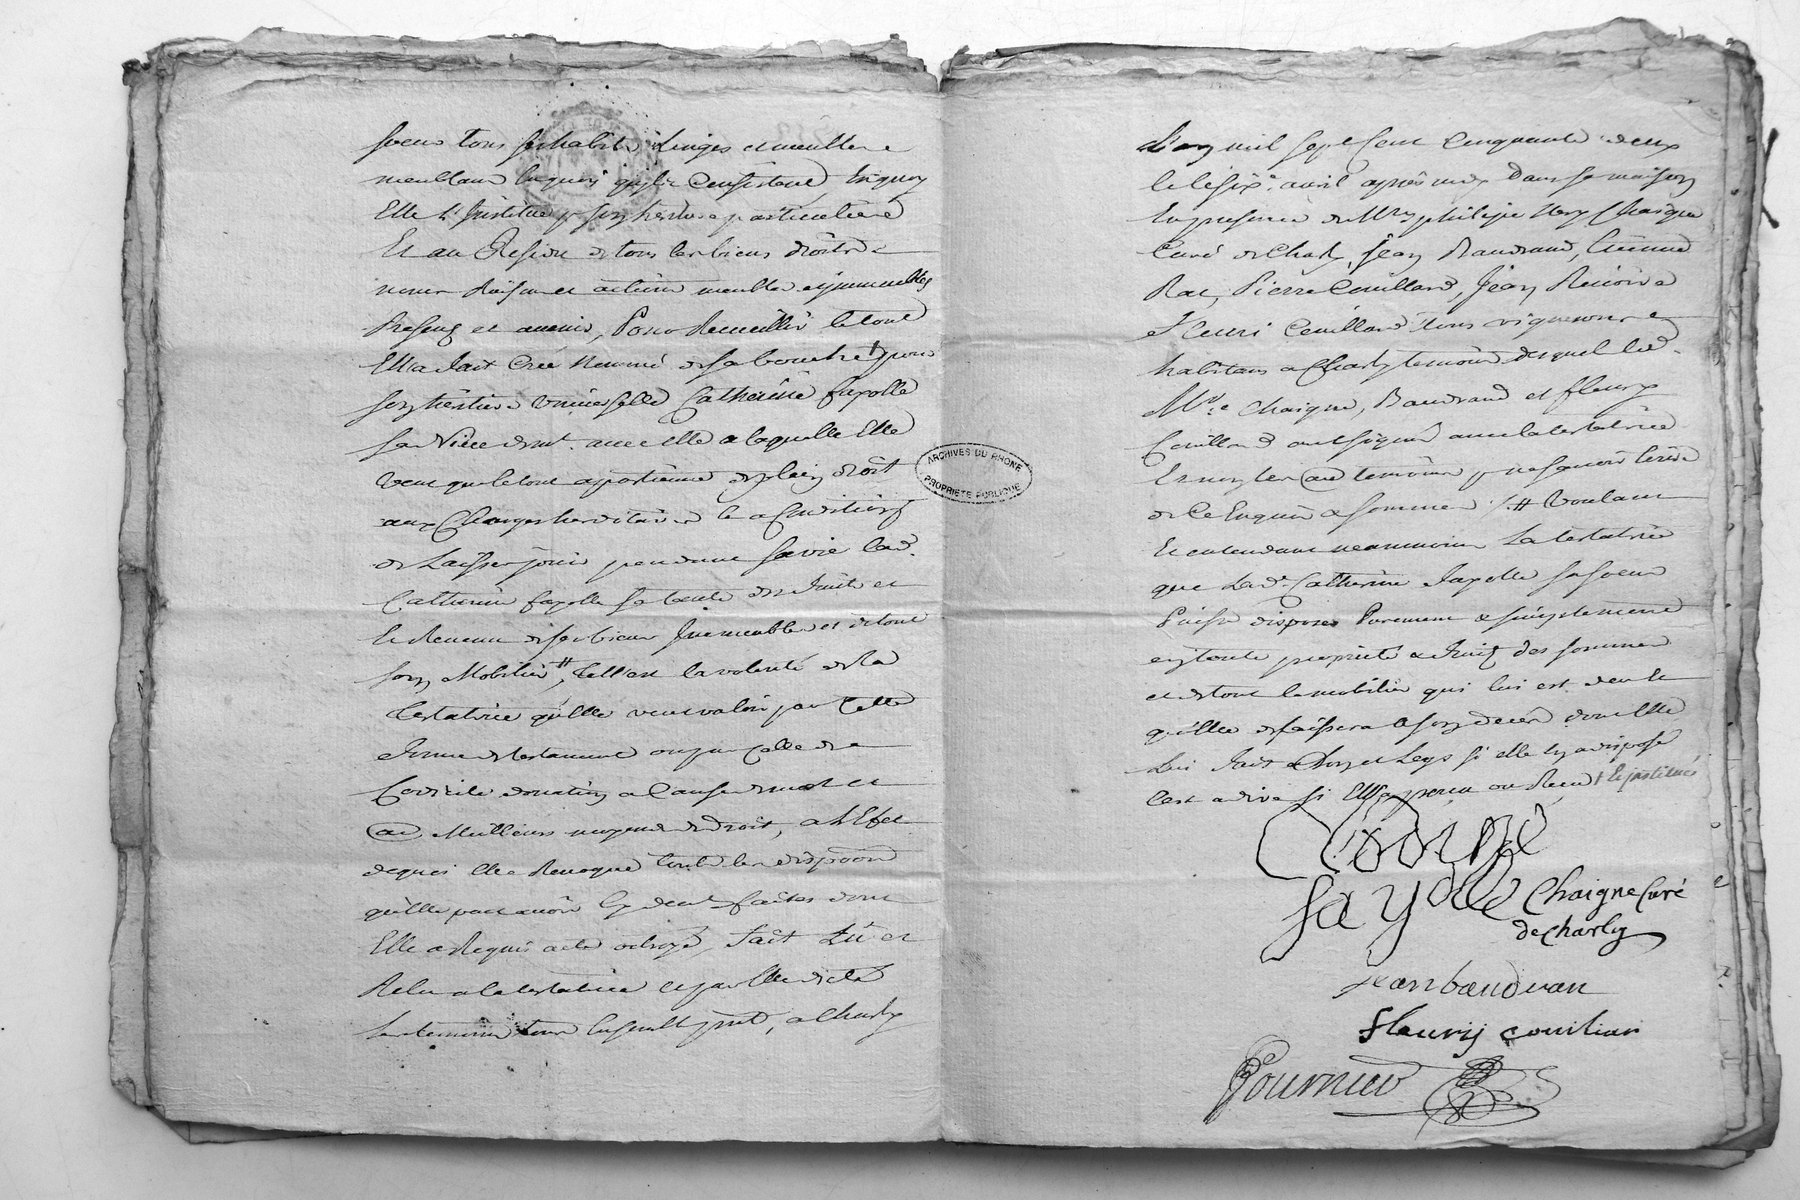 soeur tous ses habits Linges et meubles
meublans
Elle L'Institue pr son heritiere particuliere
Et au Residu de tous ses biens droits
noms Raisons et actions meubles et jmmeubles
Presens et avenir, Pour Recueillir le tout
Elle a fait Crée Nommé de sa bouche pour
son heritiere universelle Catherine fayolle
sa Niece demt avec elle a laquelle Elle
veut que le tout apartienne de plein droit
aux Charges hereditaires les a Conditions
de Laisser jouir pendant sa vie lad.
Catherine fayolle sa tante des fruits et
le Revenu de ses biens Immeubles et de tout
son Mobilier, # telle est la volonté de la
Testatrice qu'elle veut valoir par Cette
forme de testament ou par Celle de
Codicile donation a Cause de mort et
au Meilleurs moyens de droit, a L'Efet
de quoi elle Revoque toutes les disp̃ons
qu'elle peut avoir cy devt faites dont
Elle a Requis acte octroyé, fait Lû et
Relu a la testatrice et par elle dicté
les temoins tous prnt, a Charly
L'an mil sept Cent Cinquante deux
le six avril après midy Dans sa maison
En presence de Mre philippe Chaigne
Curé de Charly, Jean Baudrand, Etienne
Rat, Pierre Couillard, Jean
Fleuri Couillard tous vignerons
habitans a Charly temoins desquel led.
Mre Chaigne, Baudrand et fleury
Couillard ont signé avec la testatrice
Et non les autres temoins pr ne sçavoir Ecrire
de Ce Enquis & sommés ./. # Voulant
Et entendant neanmoins La testatrice
que Lade Catherine fayolle sa soeur
Puisse disposer Purement & simplement
en toute proprieté & fruits des sommes
et de tout le mobilier qui lui est deu &
qu'elle delaissera a son deces dont Elle
Lui fait don et Legs si elle en a disposé
C'est a dire si Elle
fayolle Chaigne Curé
de Charly
jean baudran
fleurij couiliar
Fournier
ARCHIVES DU RHONE
PROPRIETE PUBLIQUE